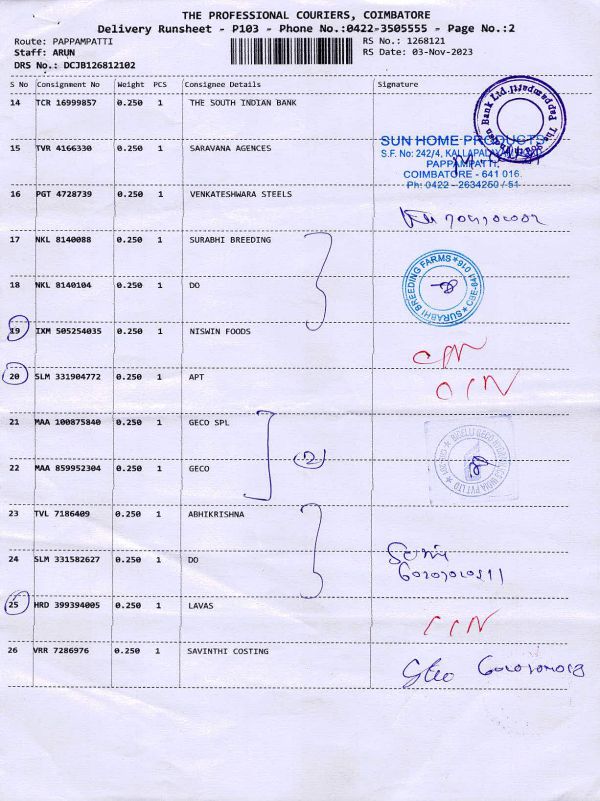 THE PROFESSIONAL COURIERS, COIMBATORE
Delivery Runsheet - P103 - Phone No.:0422-3505555 - Page No.:2
Route: PAPPAMPATTI RS No.: 1268121
Staff: ARUN RS Date: 03-Nov-2023
DRS No.: DCJB126812102
S No Consignment No Weight PCS Consignee Details Signature
14 TCR 16999857 0.250 1 THE SOUTH INDIAN BANK
15 TVR 4166330 0.250 1 SARAVANA AGENCES
SUN HOME PRODUCTS
S.F. No: 242/4, KALLAPALAYAM
PAPPAMPATTI,
COIMBATORE - 641 016.
Ph: 0422 - 2634250 / 51
16 PGT 4728739 0.250 1 VENKATESHWARA STEELS
17 NKL 8140088 0.250 1 SURABHI BREEDING
SURABHI BREEDING FARMS CBE-641 016
18 NKL 8140104 0.250 1 DO
19 IXM 505254035 0.250 1 NISWIN FOODS
20 SLM 331904772 0.250 1 APT
21 MAA 100875840 0.250 1 GECO SPL
22 MAA 859952304 0.250 1 GECO
2
23 TVL 7186409 0.250 1 ABHIKRISHNA
24 SLM 331582627 0.250 1 DO
25 HRD 399394005 0.250 1 LAVAS
26 VRR 7286976 0.250 1 SAVINTHI COSTING